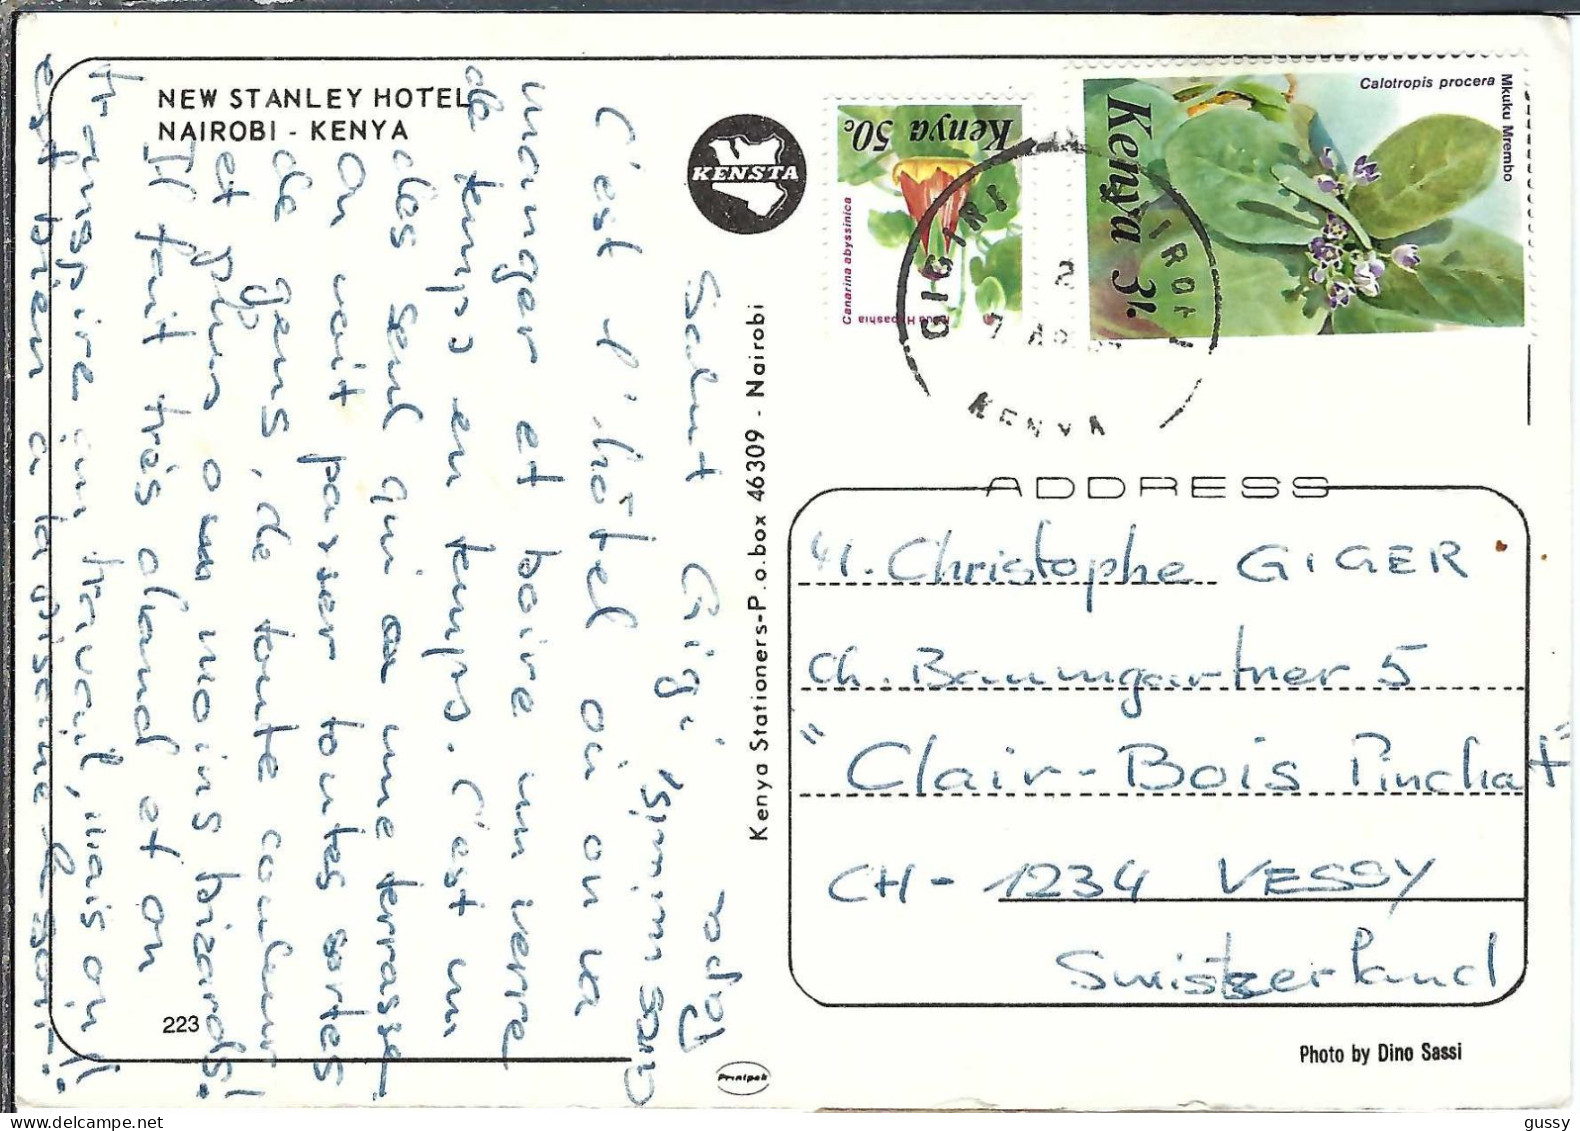 NEW STANLEY HOTEL
NAIROBI - KENYA
KENSTA
Kenya Stationers-P.o.box 46309 - Nairobi
Salut Gigi
C'est l'hôtel où on va
manger et boire un verre
de temps en temps. C'est un
des seul qui a une terrasse
On voit passer toutes sortes
de gens, de toute couleur
et plus ou moins bizards!
Il fait très chaud et on
transpire au travail, mais on
est bien à la piscine le soir.
223
Printpak
Kenya 50c
Canarina abyssinica
Calotropis procera
Mkuku Mrembo
Kenya 3/-
GIGIRI
NAIROBI
2
7 AP
KENYA
ADDRESS
M. Christophe GIGER
Ch. Baumgartner 5
"Clair-Bois Pinchat"
CH - 1234 VESSY
Switzerland
Photo by Dino Sassi
gussy